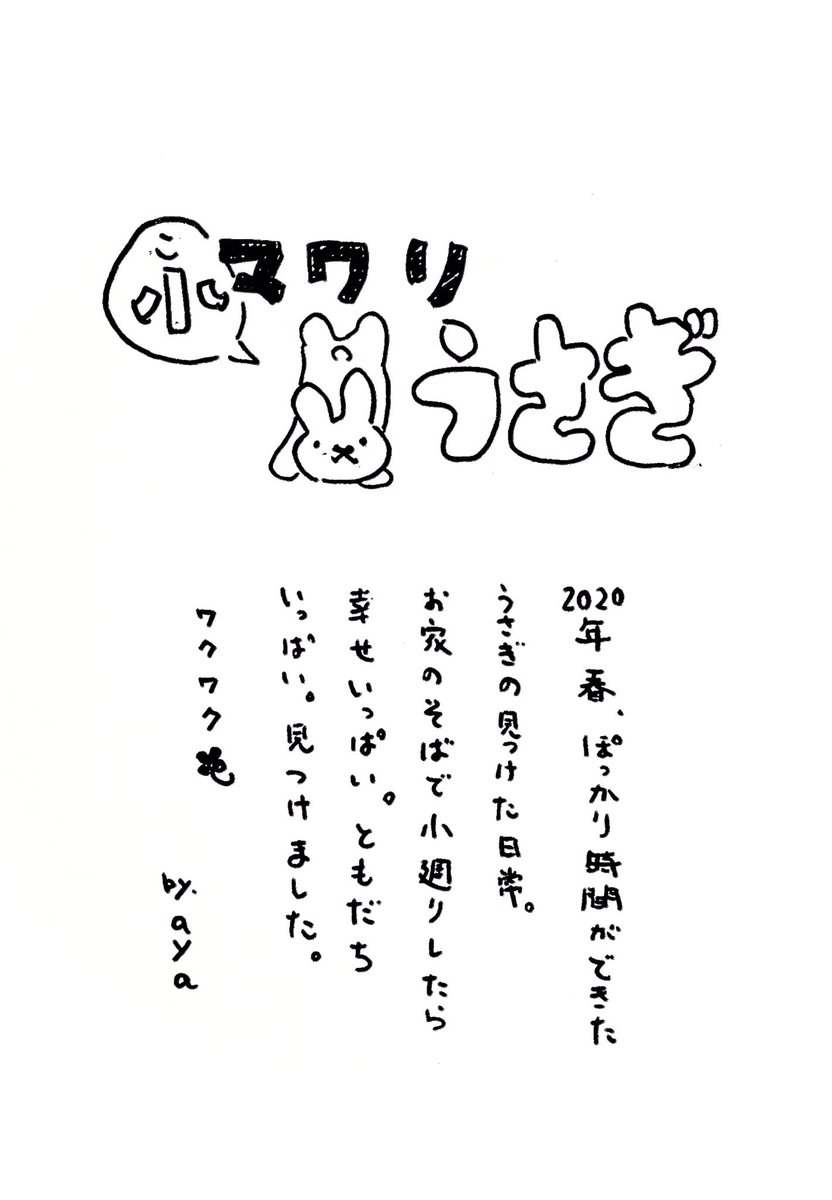 小マワリ
うさぎ
2020年 春、ぽっかり時間ができた
うさぎの見つけた日常。
お家のそばで小週りしたら
幸せいっぱい。ともだち
いっぱい。見つけました。
ワクワク
by. aya